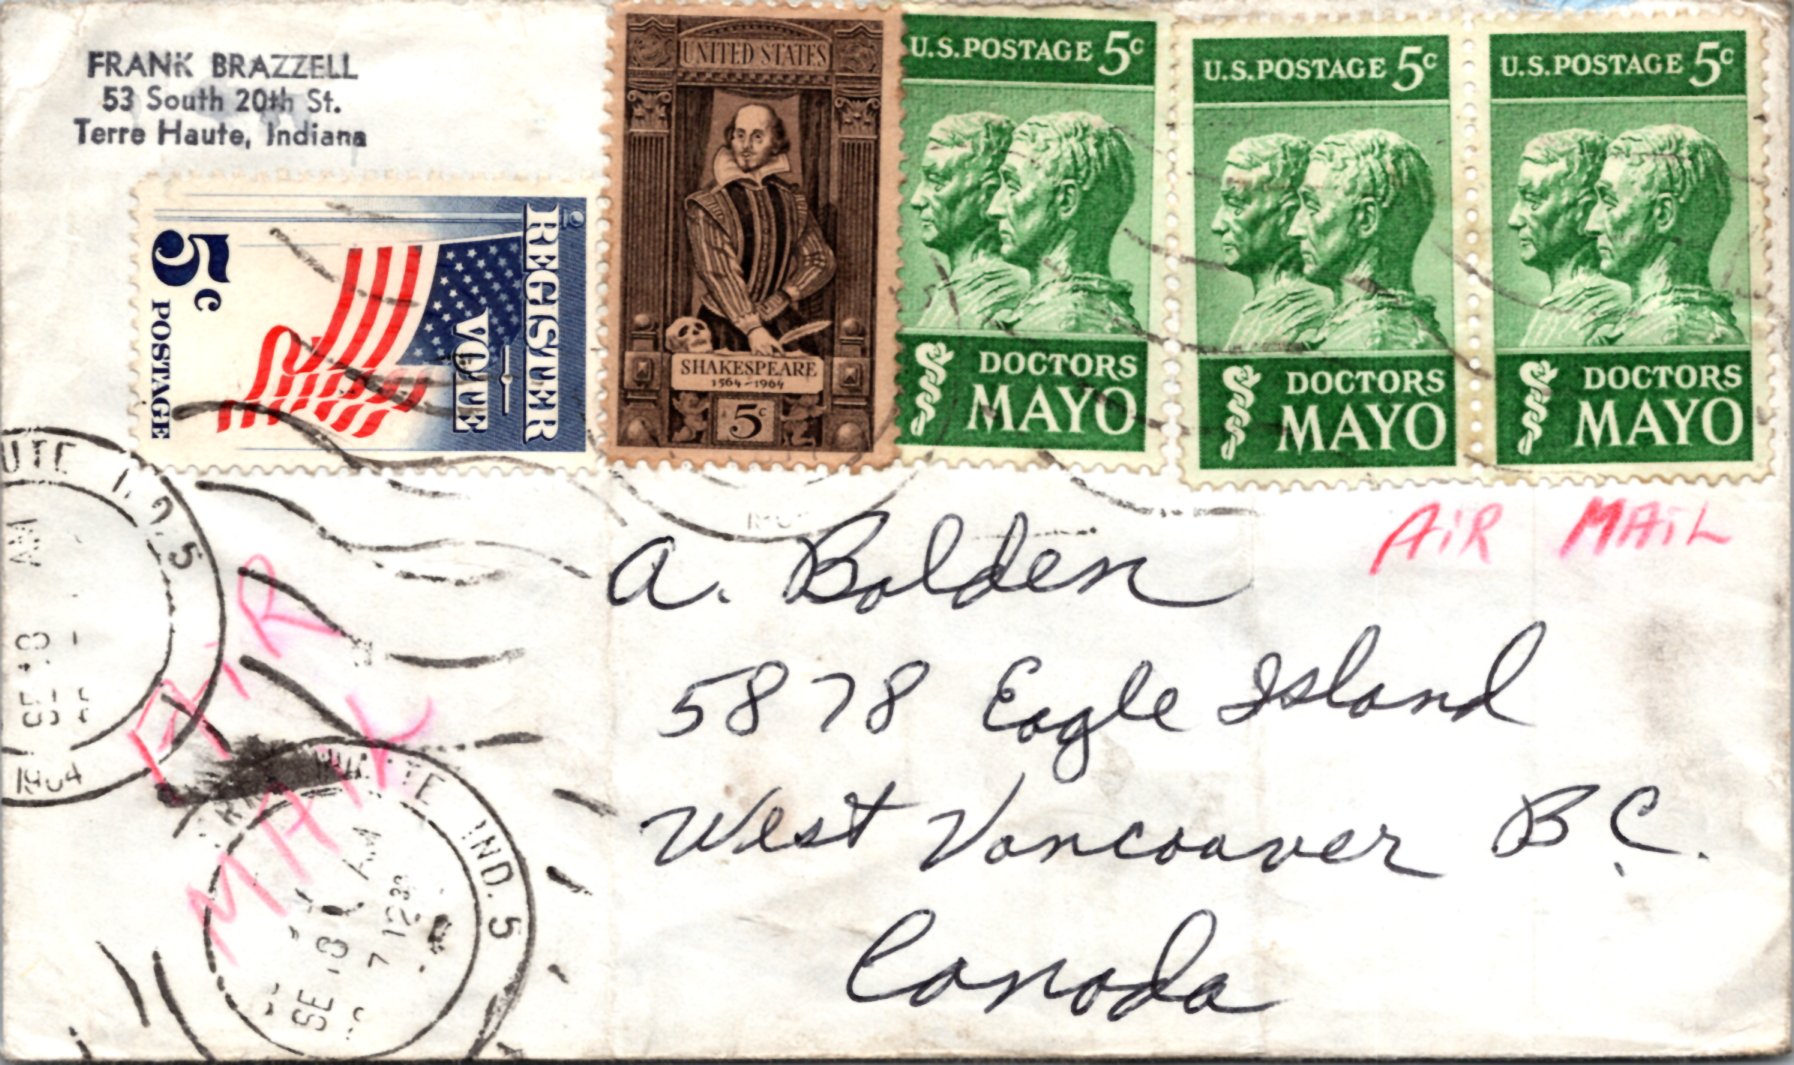 FRANK BRAZZELL
53 South 20th St.
Terre Haute, Indiana
REGISTER
VOTE
5c
POSTAGE
UNITED STATES
SHAKESPEARE
1564-1964
5c
U.S.POSTAGE 5c
DOCTORS
MAYO
U.S.POSTAGE 5c
DOCTORS
MAYO
U.S.POSTAGE 5c
DOCTORS
MAYO
AiR MAiL
A. Bolden
5878 Eagle Island
West Vancouver B.C.
Canada
AiR
MAiL
AM
1964
IND. 5
AM
SE 18
7 12